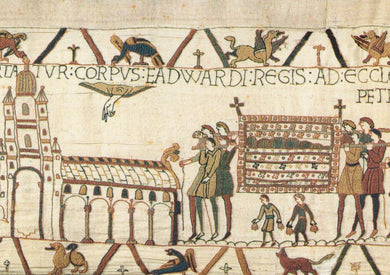 TATUR: CORPUS: EADWARDI: REGIS: AD: ECCL
PETRI